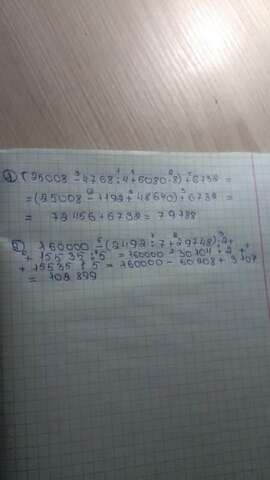 1) (25008 - 4768 : 4 + 6080 · 8) + 6732 =
= (25008 - 1192 + 48640) + 6732 =
= 72456 + 6732 = 79188
2) 160000 - (2492 : 7 + 29748) · 2 +
+ 15535 : 5 = 160000 - 30104 · 2 +
+ 15535 : 5 = 160000 - 60208 + 3107
= 102899